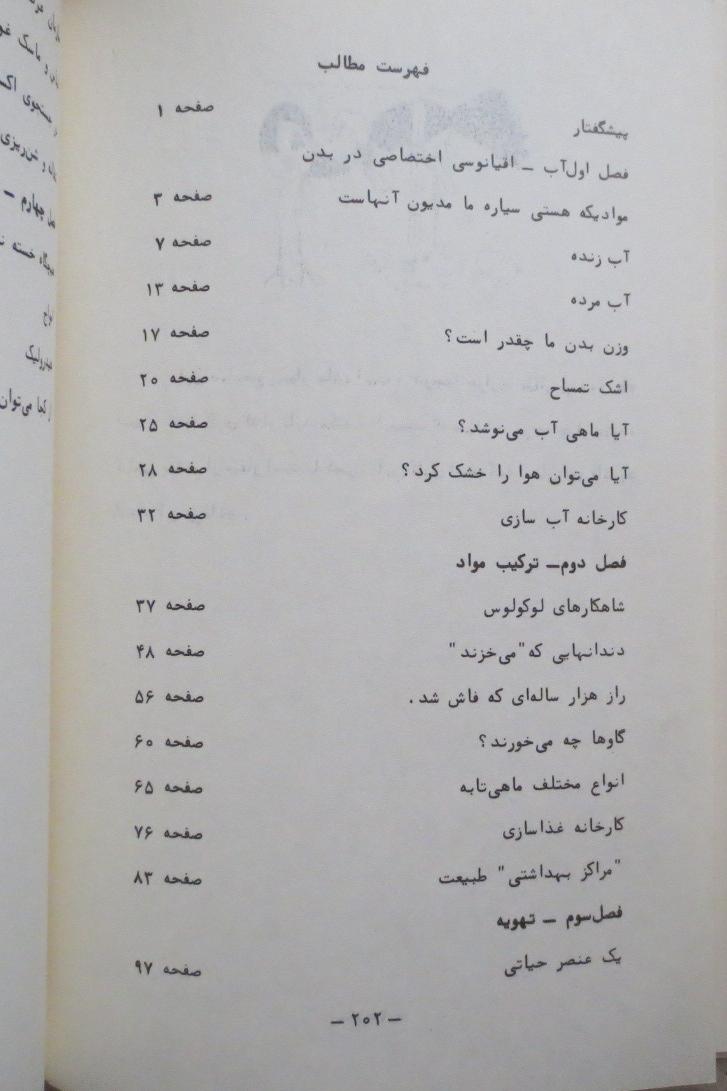 فهرست مطالب
پیشگفتار صفحه ۱
فصل اول‌آب ــ اقیانوسی اختصاصی در بدن
موادیکه هستی سیاره ما مدیون آنهاست صفحه ۳
آب زنده صفحه ۷
آب مرده صفحه ۱۳
وزن بدن ما چقدر است؟ صفحه ۱۷
اشک تمساح صفحه ۲۰
آیا ماهی آب می‌نوشد؟ صفحه ۲۵
آیا می‌توان هوا را خشک کرد؟ صفحه ۲۸
کارخانه آب سازی صفحه ۳۲
فصل دوم‌ــ ترکیب مواد
شاهکارهای لوکولوس صفحه ۳۷
دندانهایی که "می‌خزند" صفحه ۴۸
راز هزار ساله‌ای که فاش شد. صفحه ۵۶
گاوها چه می‌خورند؟ صفحه ۶۰
انواع مختلف ماهی‌تابه صفحه ۶۵
کارخانه غذاسازی صفحه ۷۶
"مراکز بهداشتی" طبیعت صفحه ۸۳
فصل‌سوم ــ تهویه
یک عنصر حیاتی صفحه ۹۷
ــ ۲۰۲ ــ
و ماسک
جستجوی
و شن‌ریزی
چهارم ــ
خسته
هیدرولیک
کجا می‌توان